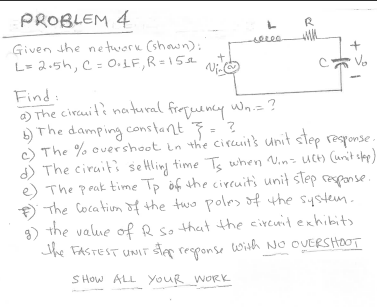 PROBLEM 4
Given the network (shown):
L= 2.5h, C = 0.1F, R = 15Ω
L
R
+
Vin
C
+
Vo
-
Find:
a) The circuit's natural frequency Wn.= ?
b) The damping constant ξ = ?
c) The % overshoot in the circuit's unit step response.
d) The circuit's settling time Ts when Vin = u(t) (unit step)
e) The peak time Tp of the circuit's unit step response.
f) The location of the two poles of the system.
g) the value of R so that the circuit exhibits
the FASTEST UNIT step response with NO OVERSHOOT
SHOW ALL YOUR WORK